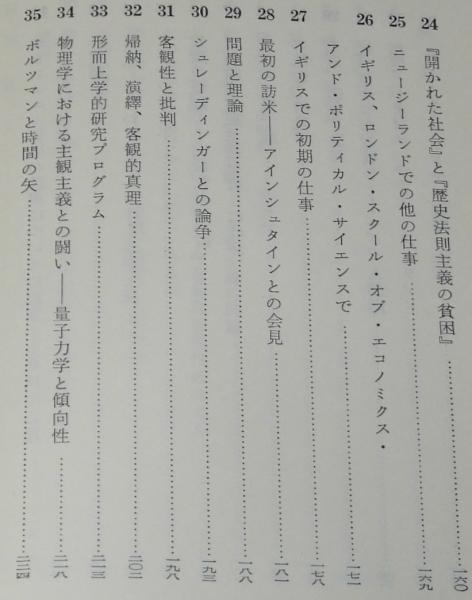 24 『開かれた社会』と『歴史法則主義の貧困』……一六〇
25 ニュージーランドでの他の仕事……一六九
26 イギリス、ロンドン・スクール・オブ・エコノミクス・
アンド・ポリティカル・サイエンスで……一七一
27 イギリスでの初期の仕事……一七八
28 最初の訪米――アインシュタインとの会見……一八一
29 問題と理論……一八八
30 シュレーディンガーとの論争……一九三
31 客観性と批判……一九八
32 帰納、演繹、客観的真理……二〇二
33 形而上学的研究プログラム……二一三
34 物理学における主観主義との闘い――量子力学と傾向性……二一八
35 ボルツマンと時間の矢……二二四